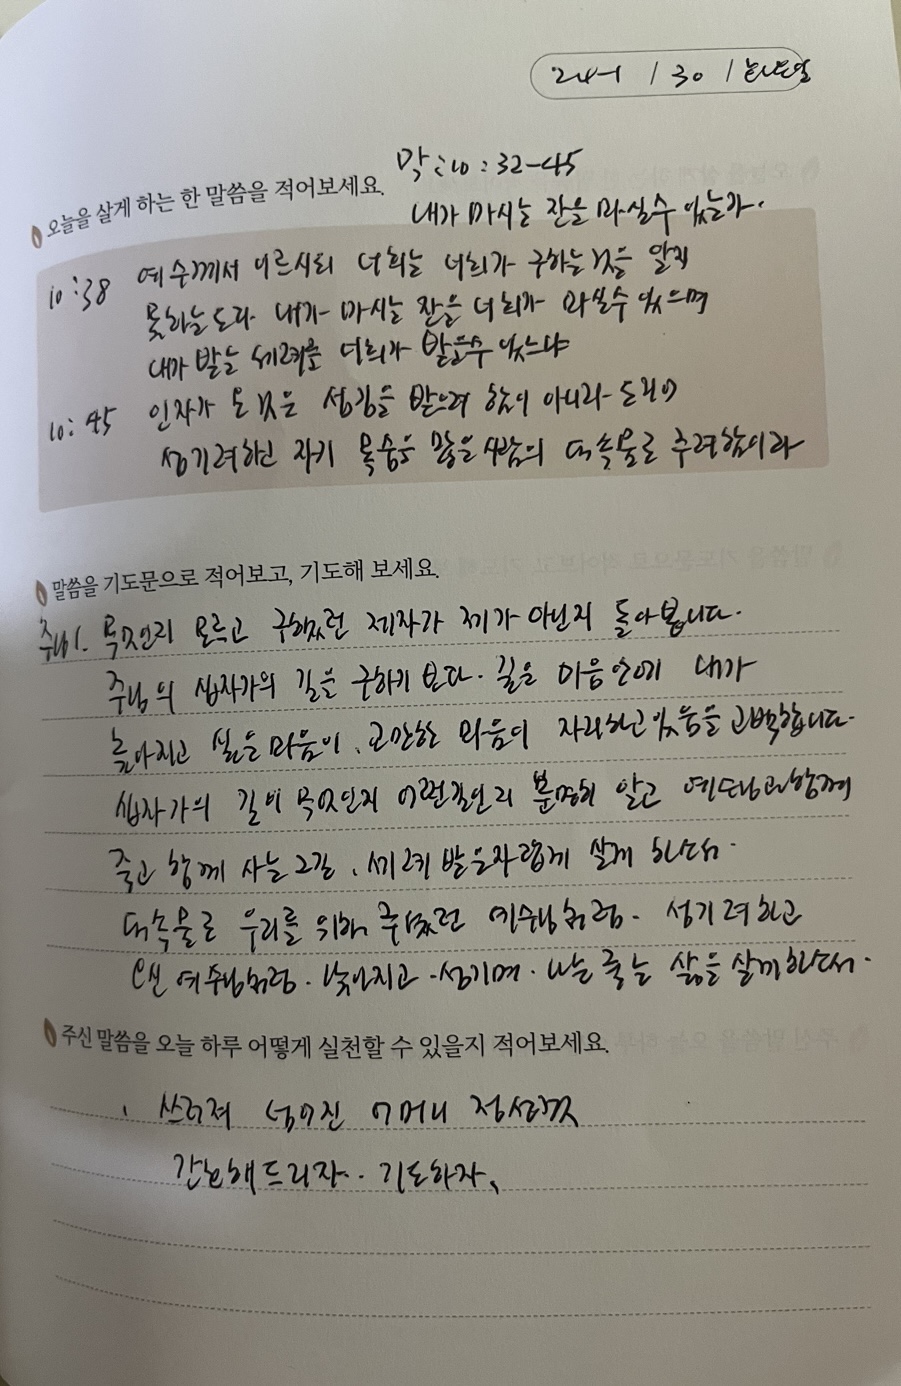 / 30 /
막:10:32-45
오늘을 살게 하는 한 말씀을 적어보세요.
내가 마시는 잔을 마실수 있는가.
10:38 예수께서 이르시되 너희는 너희가 구하는 것을 알지
못하는도다 내가 마시는 잔을 너희가 마실수 있으며
내가 받는 세례를 너희가 받을수 있느냐
10:45 인자가 온 것은 섬김을 받으려 함이 아니라 도리어
섬기려하고 자기 목숨을 많은 사람의 대속물로 주려함이라
말씀을 기도문으로 적어보고, 기도해 보세요.
주님. 무엇인지 모르고 구했던 제자가 제가 아닌지 돌아봅니다.
주님의 십자가의 길을 구하기 보다. 깊은 마음안에 내가
높아지고 싶은 마음이, 교만한 마음이 자리하고 있음을 고백합니다.
십자가의 길이 무엇인지 어떤길인지 분명히 알고 예수님과 함께
죽고 함께 사는 그길, 세례 받은자 답게 살게 하소서.
대속물로 우리를 위해 죽으셨던 예수님처럼. 섬기려하고
오신 예수님처럼. 낮아지고. 섬기며. 나는 죽는 삶을 살게하소서.
주신 말씀을 오늘 하루 어떻게 실천할 수 있을지 적어보세요.
쓰러져 넘어진 어머니 정성껏
간호해드리자. 기도하자.